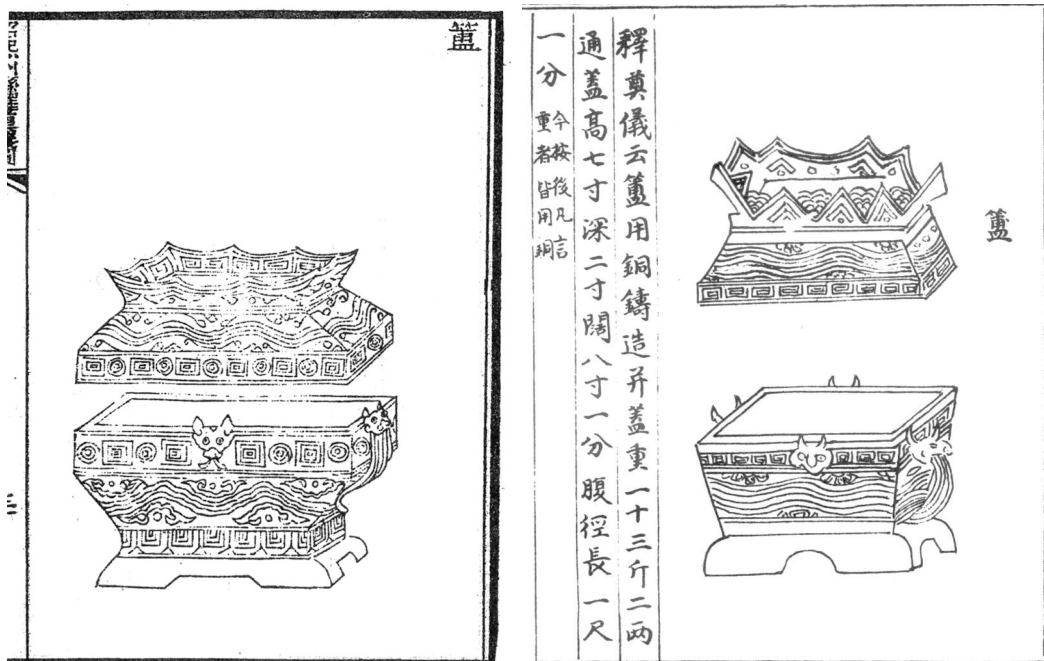 簠
簠
釋奠儀云簠用銅鑄造并蓋重一十三斤二兩
通蓋高七寸深二寸闊八寸一分腹徑長一尺
一分
今按後凡言
重者皆用銅